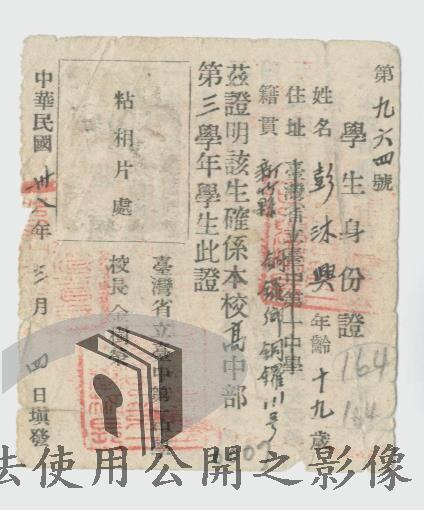 第九六四號
學生身份證
姓名 彭沐興 年齡 十九歲
住址 臺灣省立臺中第一中學
籍貫 新竹縣銅鑼鄉銅鑼
茲證明該生確係本校高中部
第三學年學生此證
臺灣省立臺中第一中學
校長 金
粘相片處
中華民國卅八年三月 四日填發
164
164
法使用公開之影像